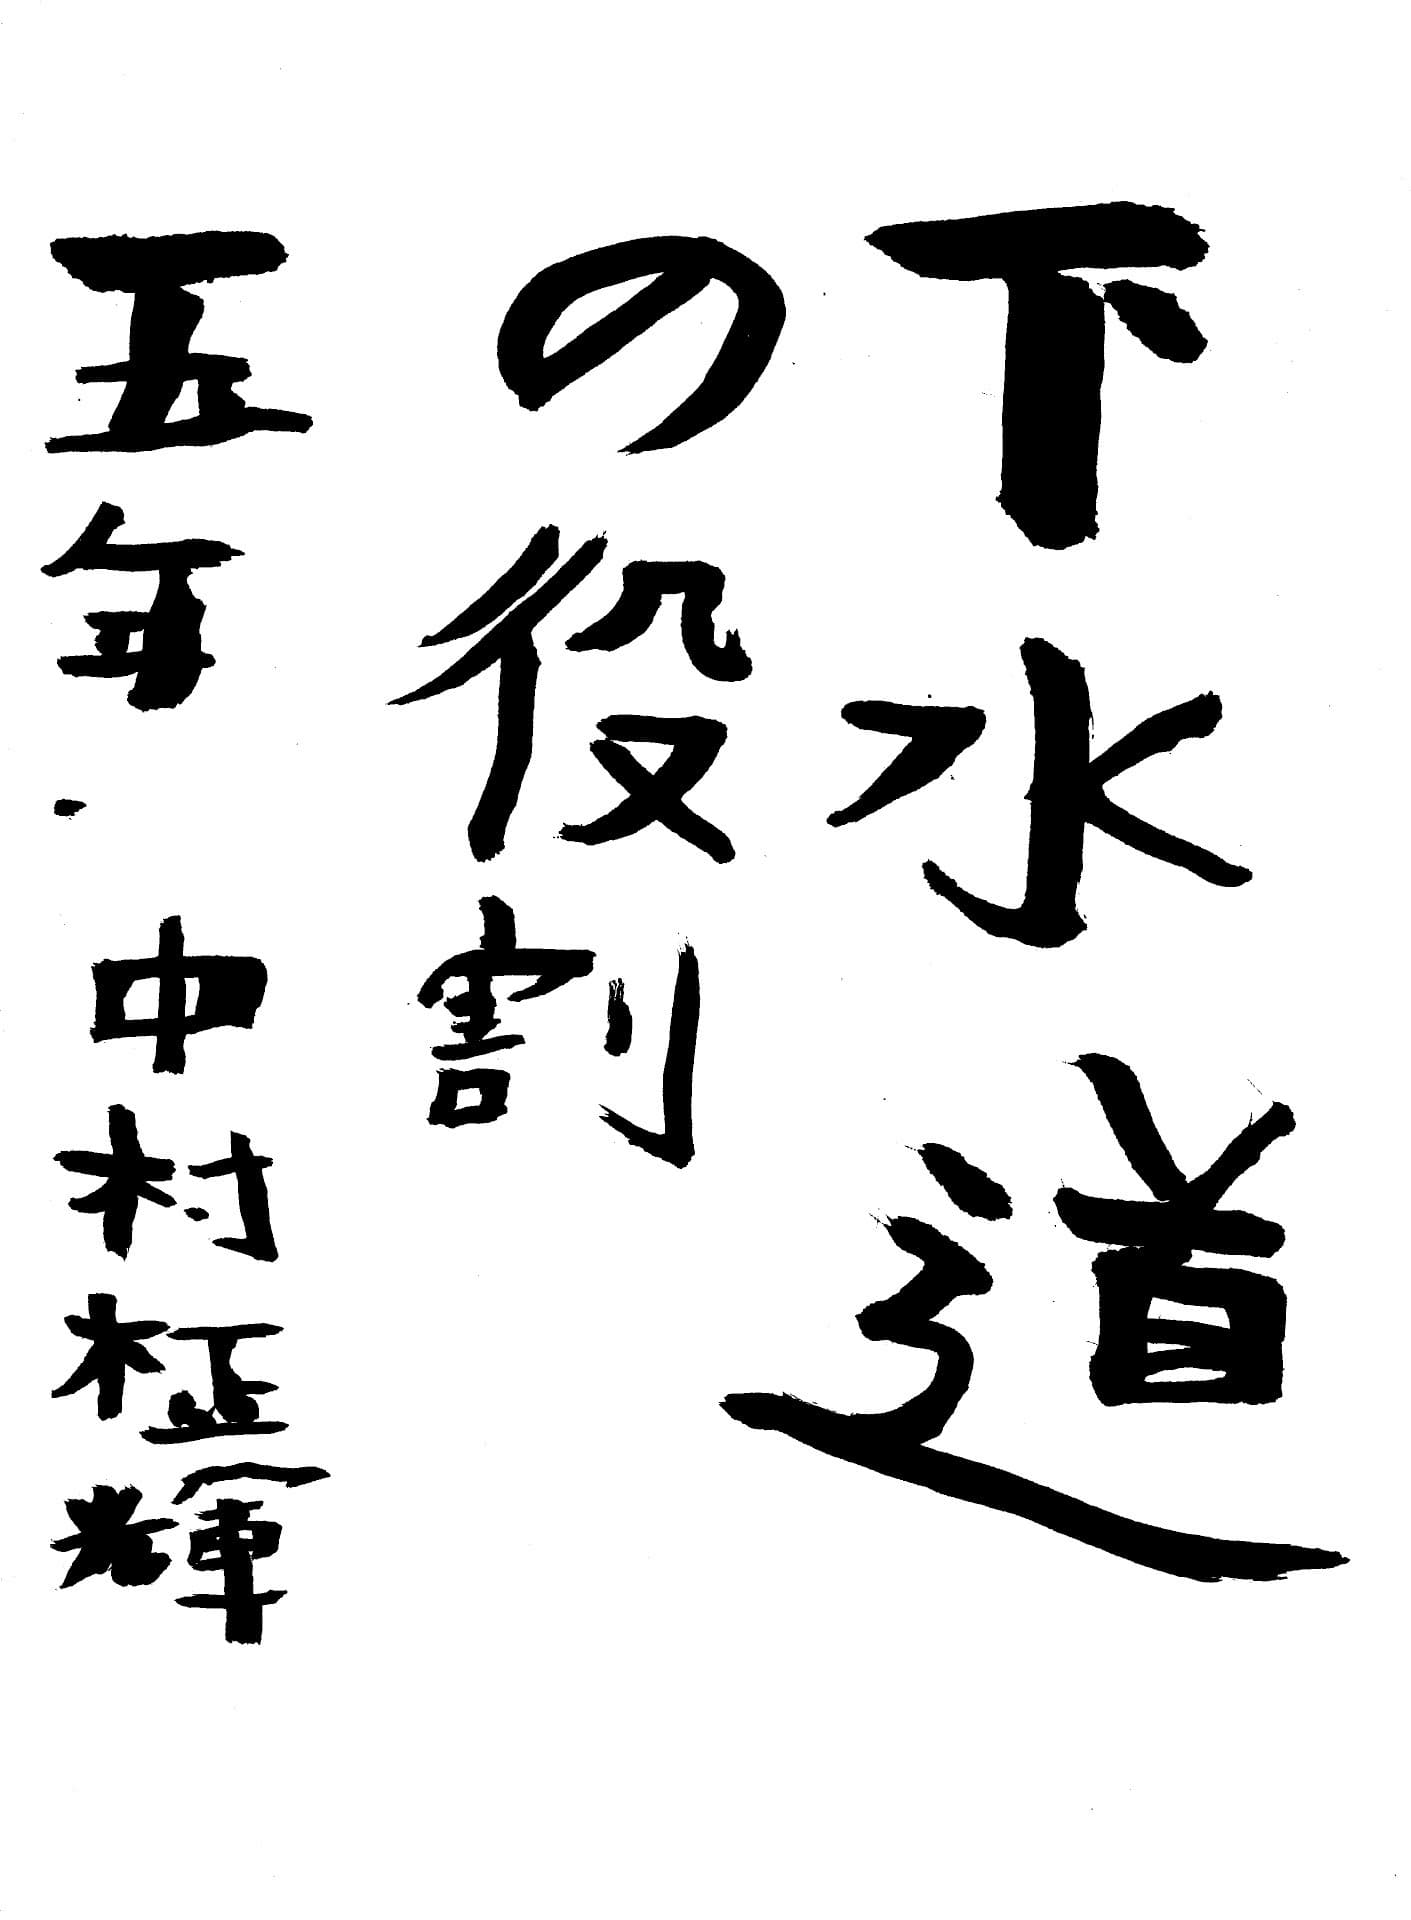 下水道
の役割
五年 中村極輝